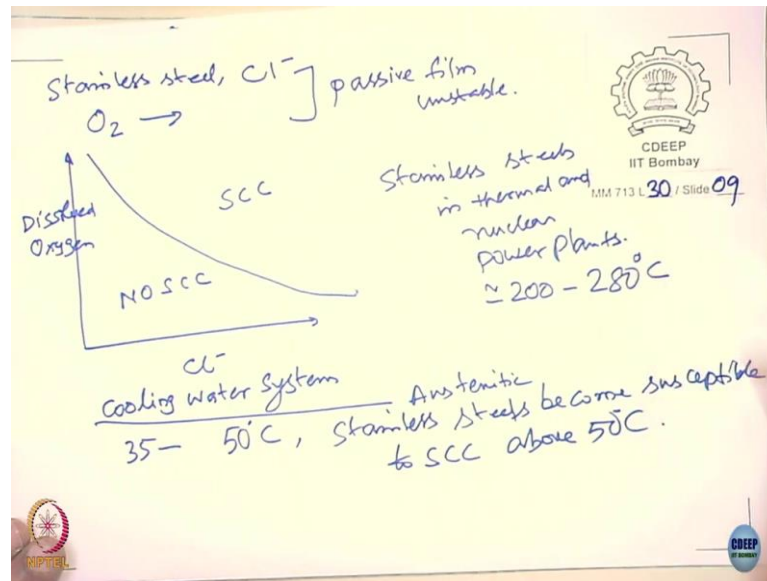 Stainless steel, Cl⁻ ] passive film
unstable.
O₂ →
CDEEP
IIT Bombay
MM 713 L 30 / Slide 09
Dissolved
Oxygen
SCC
NO SCC
Cl⁻
Stainless steels
in thermal and
nuclear
power plants.
≃ 200 - 280°C
Cooling water system
35 - 50°C, Austenitic Stainless steels become susceptible
to SCC above 50°C.
NPTEL
CDEEP
IIT BOMBAY